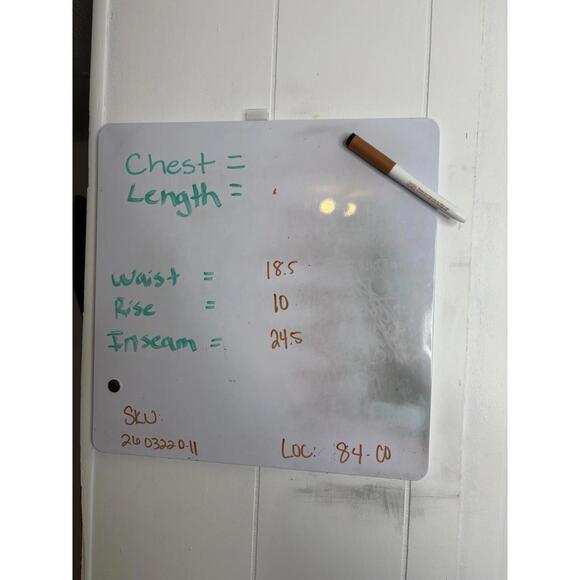 Chest =
Length =
Waist = 18.5
Rise = 10
Inseam = 24.5
SKU:
2603220-11
LOC: 84-CO